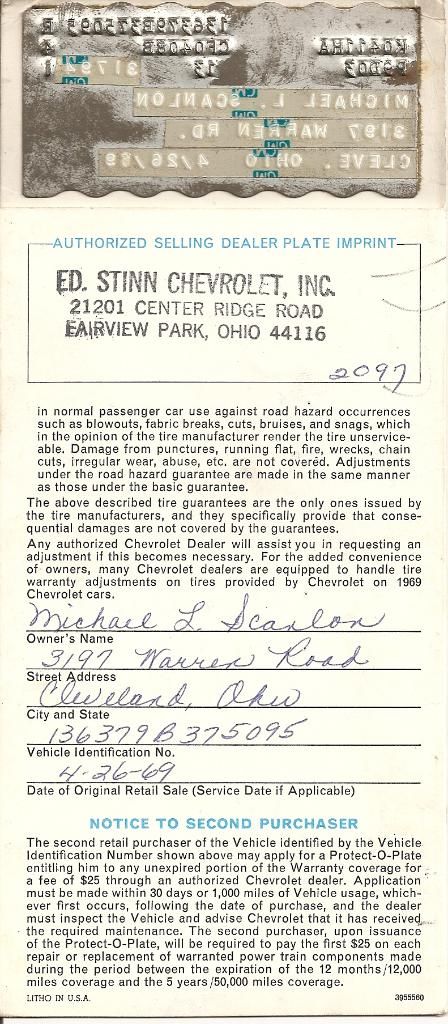 136379B375095
K0411HA CF0408B
13
MICHAEL L. SCANLON
3197 WARREN RD.
CLEVE. OHIO 4/26/69
AUTHORIZED SELLING DEALER PLATE IMPRINT
ED. STINN CHEVROLET, INC.
21201 CENTER RIDGE ROAD
FAIRVIEW PARK, OHIO 44116
2097
in normal passenger car use against road hazard occurrences
such as blowouts, fabric breaks, cuts, bruises, and snags, which
in the opinion of the tire manufacturer render the tire unservice-
able. Damage from punctures, running flat, fire, wrecks, chain
cuts, irregular wear, abuse, etc. are not covered. Adjustments
under the road hazard guarantee are made in the same manner
as those under the basic guarantee.
The above described tire guarantees are the only ones issued by
the tire manufacturers, and they specifically provide that conse-
quential damages are not covered by the guarantees.
Any authorized Chevrolet Dealer will assist you in requesting an
adjustment if this becomes necessary. For the added convenience
of owners, many Chevrolet dealers are equipped to handle tire
warranty adjustments on tires provided by Chevrolet on 1969
Chevrolet cars.
Michael L Scanlon
Owner's Name
3197 Warren Road
Street Address
Cleveland, Ohio
City and State
136379B375095
Vehicle Identification No.
4-26-69
Date of Original Retail Sale (Service Date if Applicable)
NOTICE TO SECOND PURCHASER
The second retail purchaser of the Vehicle identified by the Vehicle
Identification Number shown above may apply for a Protect-O-Plate
entitling him to any unexpired portion of the Warranty coverage for
a fee of $25 through an authorized Chevrolet dealer. Application
must be made within 30 days or 1,000 miles of Vehicle usage, which-
ever first occurs, following the date of purchase, and the dealer
must inspect the Vehicle and advise Chevrolet that it has received
the required maintenance. The second purchaser, upon issuance
of the Protect-O-Plate, will be required to pay the first $25 on each
repair or replacement of warranted power train components made
during the period between the expiration of the 12 months/12,000
miles coverage and the 5 years/50,000 miles coverage.
LITHO IN U.S.A. 3955560